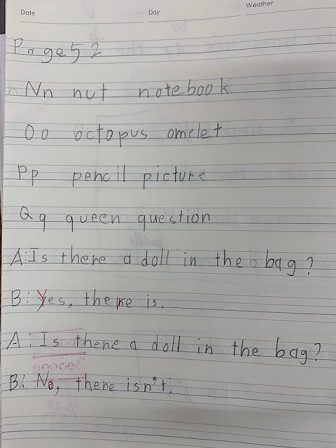 Date Day Weather
Page 52
Nn nut notebook
Oo octopus omelet
Pp pencil picture
Qq queen question
A: Is there a doll in the bag?
B: Yes, there is.
A: Is there a doll in the bag?
B: No, there isn't.